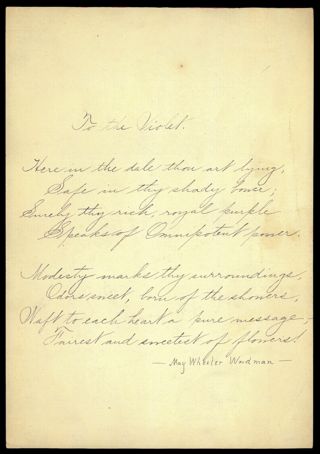 To the Violet.
Here in the dale thou art lying,
Safe in thy shady bower;
Surely thy rich, royal purple
Speaks of Omnipotent power.
Modesty marks thy surroundings,
Odors sweet, born of the showers,
Waft to each heart a pure message,—
Fairest and sweetest of flowers!
— May Wheeler Woodman —